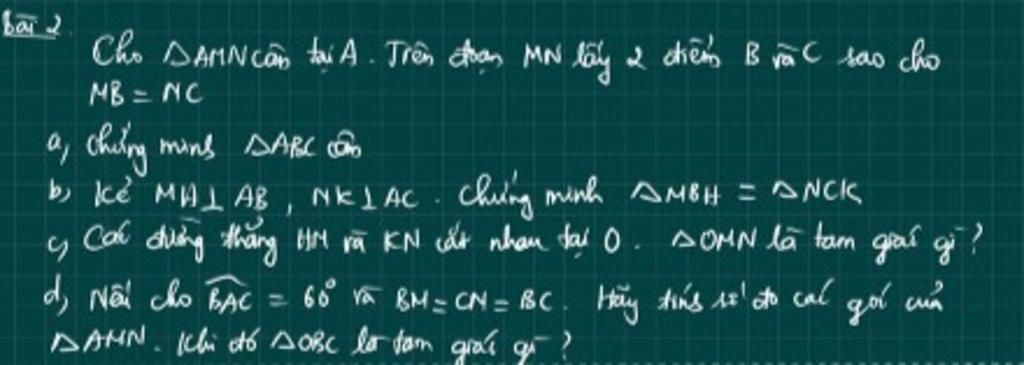 Bài 2.
Cho △AMN cân tại A. Trên đoạn MN lấy 2 điểm B và C sao cho
MB = NC
a, Chứng minh △ABC cân
b, Kẻ MH⊥AB, NK⊥AC. Chứng minh △MBH = △NCK
c, Các đường thẳng HM và KN cắt nhau tại O. △OMN là tam giác gì?
d, Nếu cho \widehat{BAC} = 60° và BM = CN = BC. Hãy tính số đo các góc của
△AMN. Khi đó △OBC là tam giác gì?